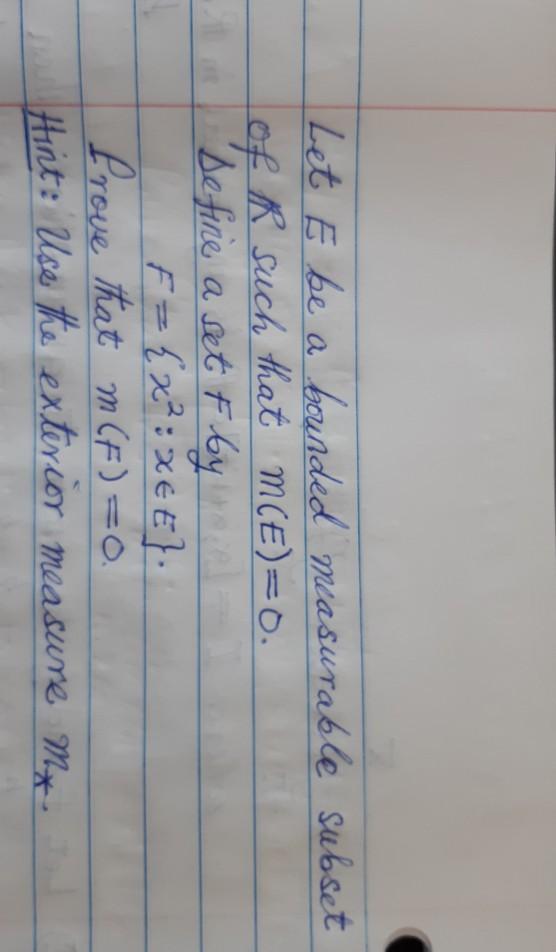 Let E be a bounded measurable subset
of ℝ such that m(E)=0.
Define a set F by
F = {x²: x∈E}.
Prove that m(F)=0.
Hint: Use the exterior measure m*.